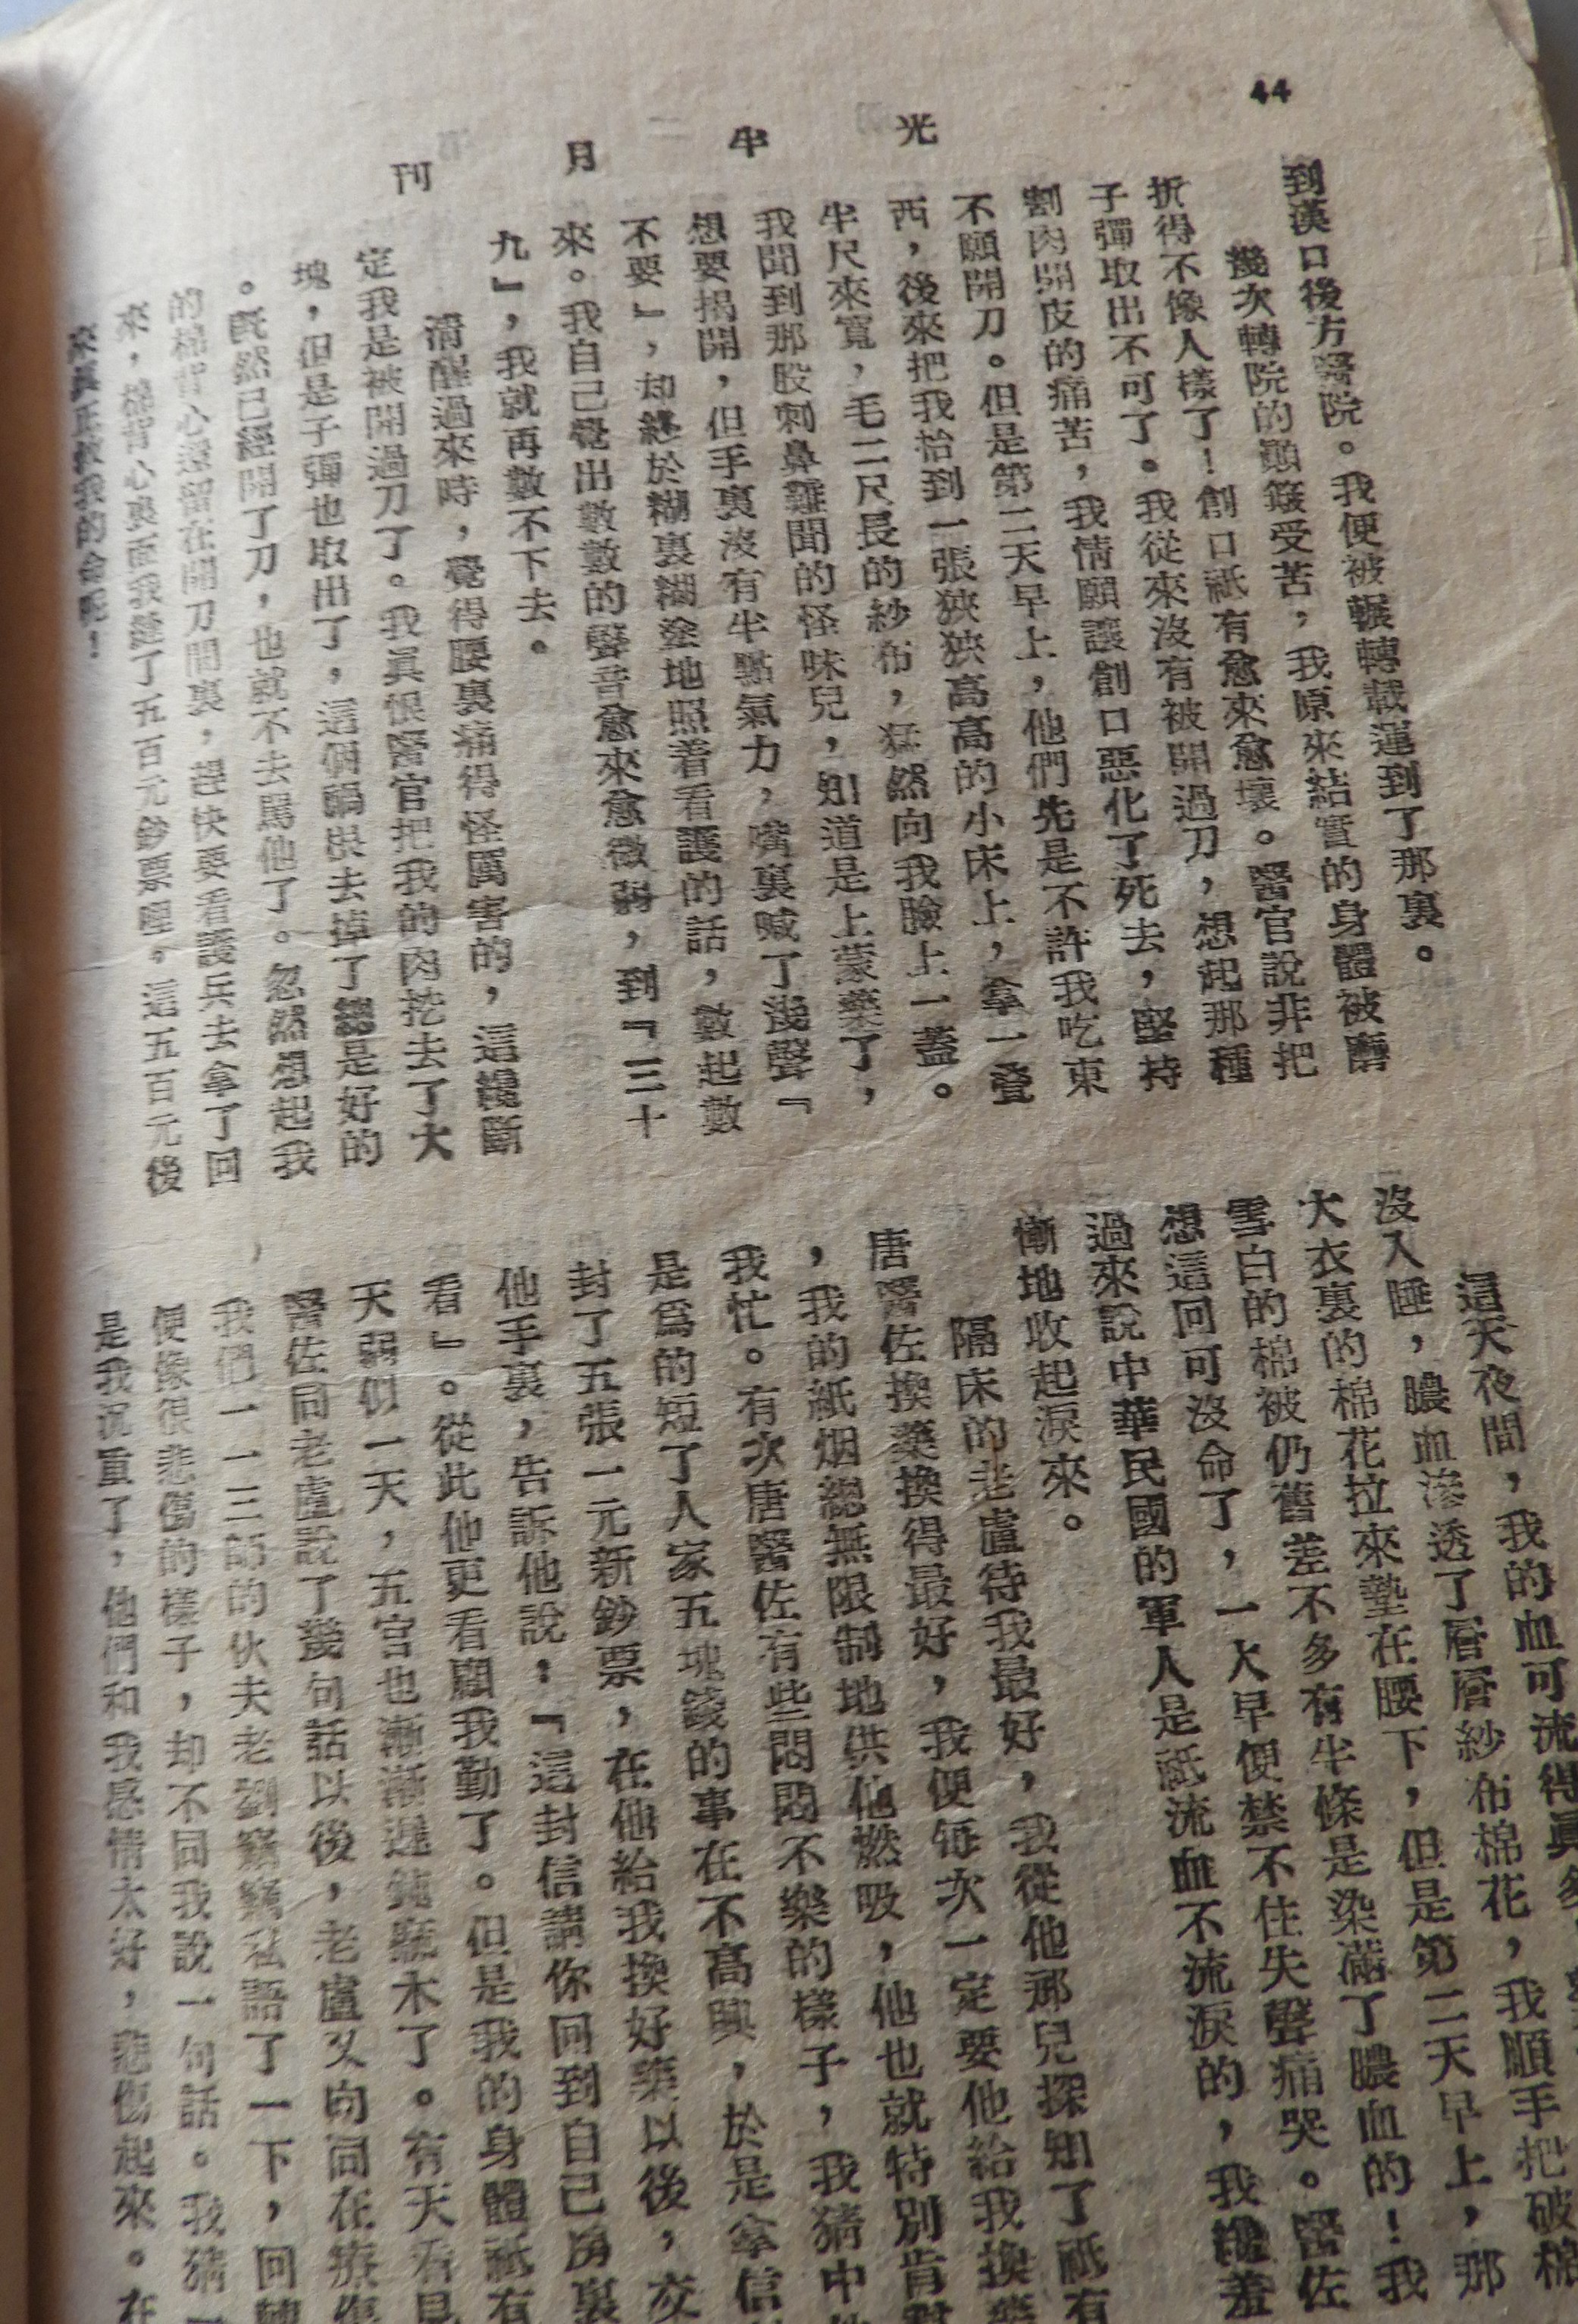 44
光半月刊
到漢口後方醫院。我便被輾轉載運到了那裏。
幾次轉院的顚簸受苦，我原來結實的身體被磨
折得不像人樣了！創口祇有愈來愈壞。醫官說非把
子彈取出不可了。我從來沒有被開過刀，想起那種
割肉開皮的痛苦，我情願讓創口惡化了死去，堅持
不願開刀。但是第二天早上，他們先是不許我吃東
西，後來把我抬到一張狹狹高高的小床上，拿一疊
半尺來寬，毛二尺長的紗布，猛然向我臉上一蓋。
我聞到那股刺鼻難聞的怪味兒，知道是上蒙藥了，
想要揭開，但手裏沒有半點氣力，嘴裏喊了幾聲『
不要』，却終於糊裏糊塗地照着看護的話，數起數
來。我自己覺出數數的聲音愈來愈微弱，到『三十
九』，我就再數不下去。
清醒過來時，覺得腰裏痛得怪厲害的，這纔斷
定我是被開過刀了。我眞恨醫官把我的肉挖去了大
塊，但是子彈也取出了，這個禍祟去掉了總是好的
。旣然已經開了刀，也就不去罵他了。忽然想起我
的棉背心還留在開刀間裏，趕快要看護兵去拿了回
來，棉背心裏面我縫了五百元鈔票哩。這五百元後
來眞正救我的命呢！
這天夜間，我的血可流得眞多
沒入睡，膿血滲透了層層紗布棉花，我順手把破棉
大衣裏的棉花拉來墊在腰下，但是第二天早上，那
雪白的棉被仍舊差不多有半條是染滿了膿血的！我
想這回可沒命了，一大早便禁不住失聲痛哭。醫佐
過來說中華民國的軍人是祇流血不流淚的，我纔羞
慚地收起淚來。
隔床的老盧待我最好，我從他那兒探知了祇有
唐醫佐換藥換得最好，我便每次一定要他給我換藥
，我的紙烟總無限制地供他燃吸，他也就特別肯幫
我忙。有次唐醫佐有些悶悶不樂的樣子，我猜中
是爲的短了人家五塊錢的事在不高興，於是拿信
封了五張一元新鈔票，在他給我換好藥以後，交
他手裏，告訴他說：『這封信請你回到自己房裏
看』。從此他更看顧我勤了。但是我的身體祇有
天弱似一天，五官也漸漸遲鈍麻木了。有天看見
醫佐同老盧說了幾句話以後，老盧又向同在療傷
我們一一三師的伙夫老劉竊竊私語了一下，回轉
便像很悲傷的樣子，却不同我說一句話。我猜一
是我沉重了，他們和我感情太好，悲傷起來。在